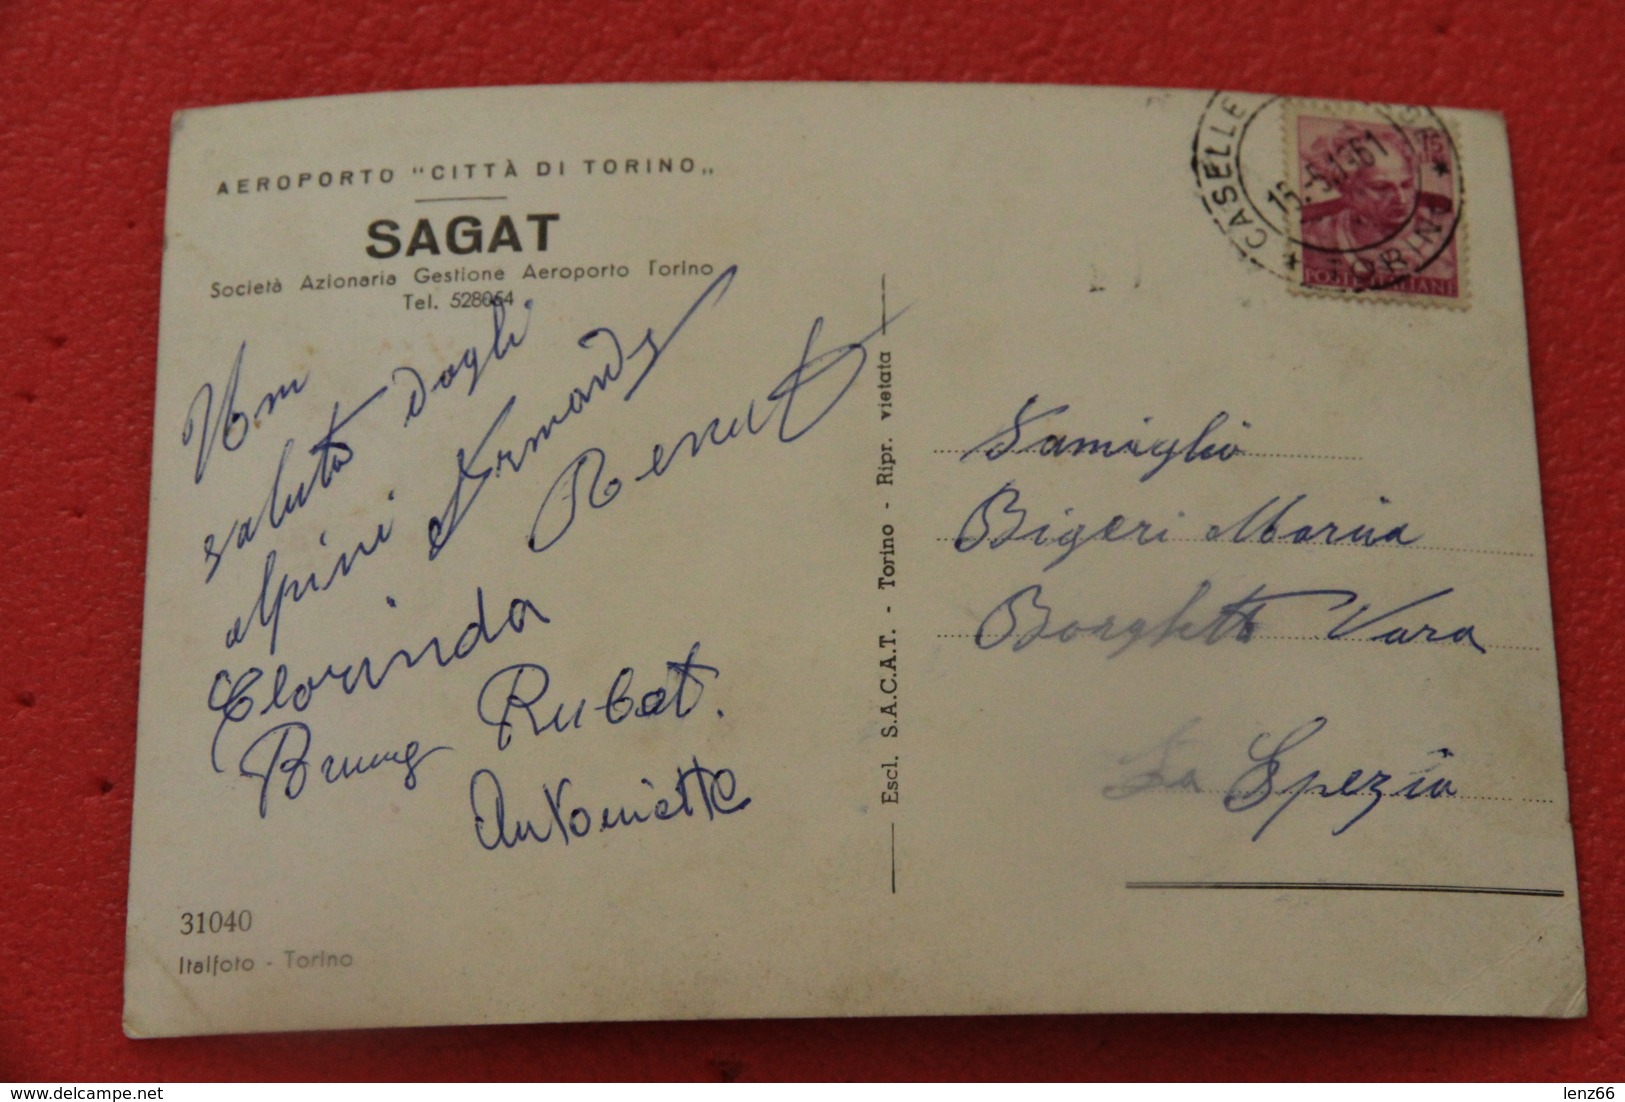 AEROPORTO "CITTÀ DI TORINO"
SAGAT
Società Azionaria Gestione Aeroporto Torino
Tel. 528054
Um
saluto dagli
alpini Armando
Renato
Clorinda
Bruno Rubat.
Antonietta
31040
Italfoto - Torino
Escl. S.A.C.A.T. - Torino - Ripr. vietata
CASELLE
TORINO
15.5.1961
15
POSTE ITALIANE
Famiglia
Bigeri Maria
Borghetto Vara
La Spezia
lenz66